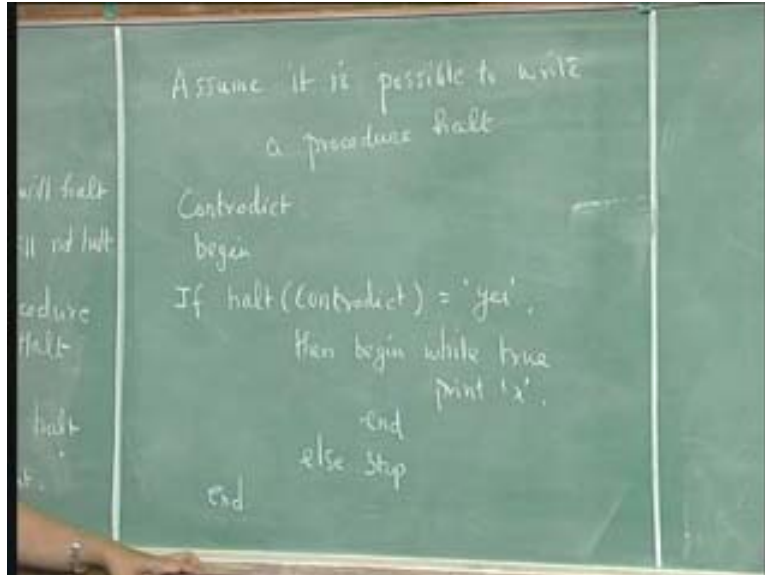 will halt
will not halt
cedure
Halt
halt
Assume it is possible to write
a procedure halt
Contradict
begin
If halt (Contradict) = 'yes',
then begin while true
print 'x'.
end
else stop
end